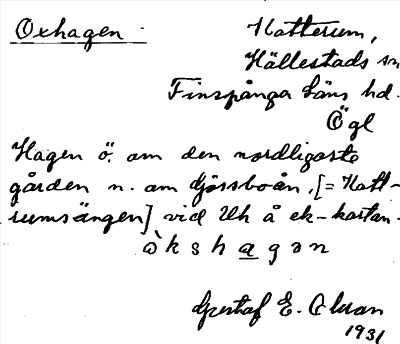 Oxhagen.
Hatterum,
Hällestads sn
Finspånga läns hd.
Ögl
Hagen ö. om den nordligaste
gården n. om djössboån, [= Hatt-
rumsängen] vid Uh å ek-kartan.
ò k s h a g ə n
Gustaf E. Olsson
1931